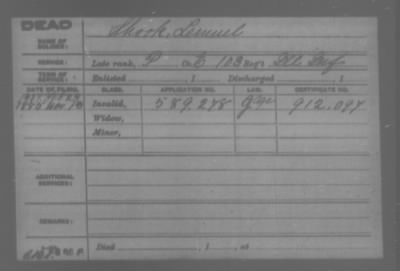 DEAD
NAME OF SOLDIER: Shook, Lemuel
SERVICE: Late rank, P Co. 103 Reg't Ill. Inf
TERM OF SERVICE: Enlisted 1 Discharged 1
DATE OF FILING. CLASS. APPLICATION NO. LAW. CERTIFICATE NO.
Invalid, 589.278 912.097
Widow,
Minor,
ADDITIONAL SERVICES:
REMARKS:
Died , 1 , at